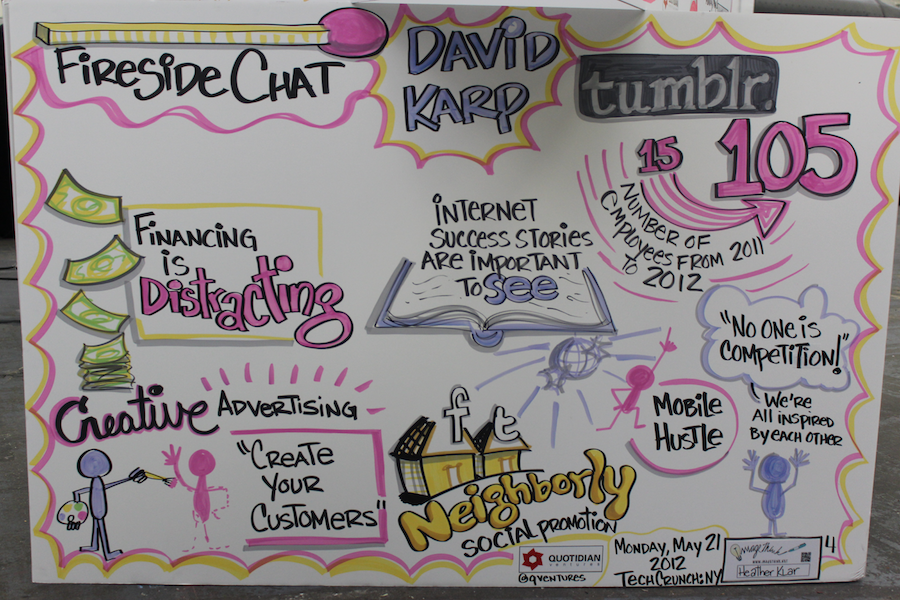 Fireside Chat
DAVID
KARP
tumblr.
15
105
NUMBER OF
EMPLOYEES FROM 2011
TO 2012
FINANCING
is
Distracting
INTERNET
SUCCESS STORIES
ARE IMPORTANT
TO SEE
"NO ONE is
COMPETITION!"
WE'RE
All INSPIRED
BY EACH OTHER
MOBILE
HUSTLE
Creative ADVERTISING
"CREATE
YOUR
CUSTOMERS"
f t
Neighborly
SOCIAL PROMOTION
QUOTIDIAN
ventures
@QVENTURES
MONDAY, MAY 21
2012
TECHCRUNCH:NY
ImageThink
Heather Klar
4